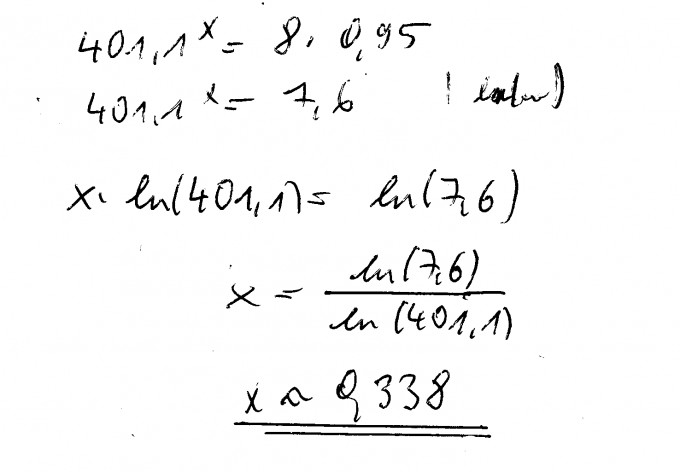 401,1^x = 8 · 0,95
401,1^x = 7,6 |
x · ln(401,1) = ln(7,6)
x = ln(7,6) / ln(401,1)
x ≈ 0,338